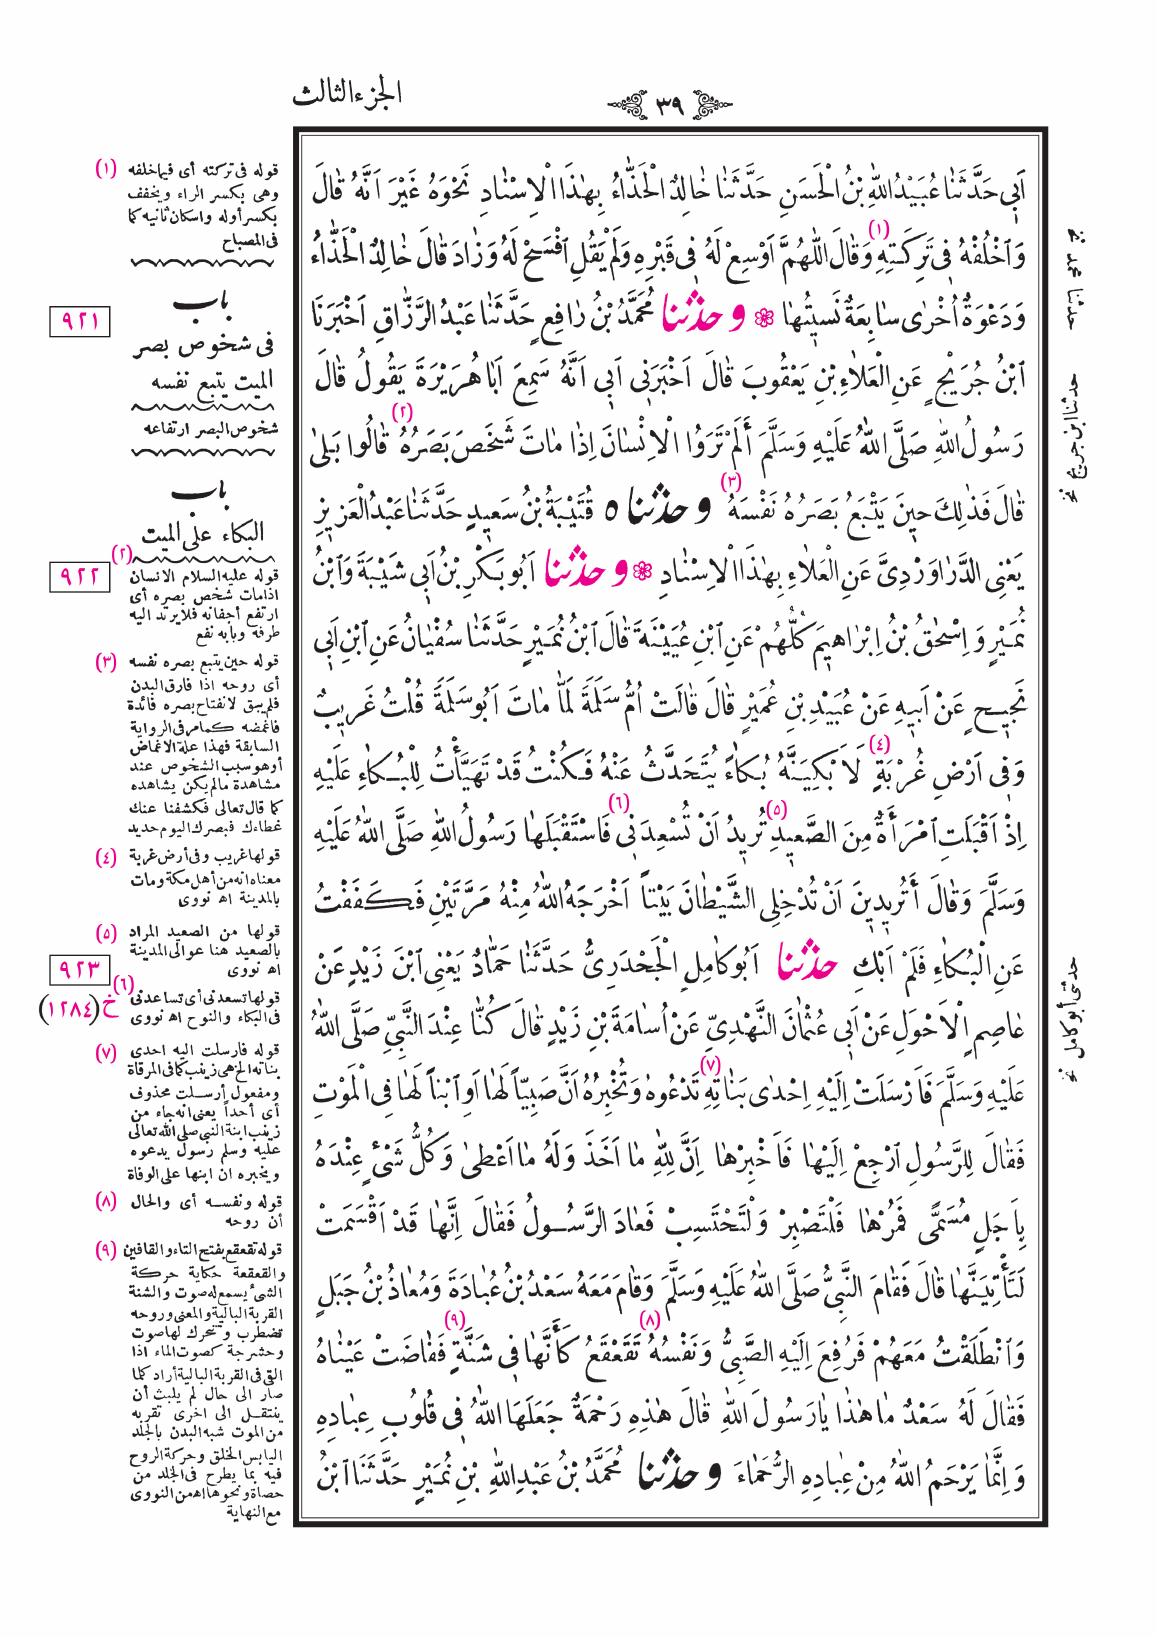 الجزء الثالث
٣٩
اَبِى حَدَّثَنَا عُبَيْدُاللّٰهِ بْنُ الْحَسَنِ حَدَّثَنَا خَالِدٌ الْحَذَّاءُ بِهٰذَا الْاِسْنَادِ نَحْوَهُ غَيْرَ اَنَّهُ قَالَ
وَاَخْلُفْهُ فِى تَرِكَتِهِ (١) وَقَالَ اللّٰهُمَّ اَوْسِعْ لَهُ فِى قَبْرِهِ وَلَمْ يَقُلِ افْسَحْ لَهُ وَزَادَ قَالَ خَالِدٌ الْحَذَّاءُ
وَدَعْوَةٌ اُخْرٰى سَابِعَةٌ نَسِيتُهَا ❁ وحدثنا مُحَمَّدُ بْنُ رَافِعٍ حَدَّثَنَا عَبْدُ الرَّزَّاقِ اَخْبَرَنَا
ابْنُ جُرَيْجٍ عَنِ الْعَلَاءِ بْنِ يَعْقُوبَ قَالَ اَخْبَرَنِى اَبِى اَنَّهُ سَمِعَ اَبَا هُرَيْرَةَ يَقُولُ قَالَ
رَسُولُ اللّٰهِ صَلَّى اللّٰهُ عَلَيْهِ وَسَلَّمَ اَلَمْ تَرَوُا الْاِنْسَانَ اِذَا مَاتَ شَخَصَ بَصَرُهُ (٢) قَالُوا بَلٰى
قَالَ فَذٰلِكَ حِينَ يَتْبَعُ بَصَرُهُ نَفْسَهُ (٣) وحدثناه قُتَيْبَةُ بْنُ سَعِيدٍ حَدَّثَنَا عَبْدُ الْعَزِيزِ
يَعْنِى الدَّرَاوَرْدِىَّ عَنِ الْعَلَاءِ بِهٰذَا الْاِسْنَادِ ❁ وحدثنا اَبُو بَكْرِ بْنُ اَبِى شَيْبَةَ وَابْنُ
نُمَيْرٍ وَاِسْحٰقُ بْنُ اِبْرَاهِيمَ كُلُّهُمْ عَنِ ابْنِ عُيَيْنَةَ قَالَ ابْنُ نُمَيْرٍ حَدَّثَنَا سُفْيَانُ عَنِ ابْنِ اَبِى
نَجِيحٍ عَنْ اَبِيهِ عَنْ عُبَيْدِ بْنِ عُمَيْرٍ قَالَ قَالَتْ اُمُّ سَلَمَةَ لَمَّا مَاتَ اَبُو سَلَمَةَ قُلْتُ غَرِيبٌ
وَفِى اَرْضِ غُرْبَةٍ (٤) لَاَبْكِيَنَّهُ بُكَاءً يُتَحَدَّثُ عَنْهُ فَكُنْتُ قَدْ تَهَيَّأْتُ لِلْبُكَاءِ عَلَيْهِ
اِذْ اَقْبَلَتِ امْرَأَةٌ مِنَ الصَّعِيدِ (٥) تُرِيدُ اَنْ تُسْعِدَنِى (٦) فَاسْتَقْبَلَهَا رَسُولُ اللّٰهِ صَلَّى اللّٰهُ عَلَيْهِ
وَسَلَّمَ وَقَالَ أَتُرِيدِينَ اَنْ تُدْخِلِى الشَّيْطَانَ بَيْتاً اَخْرَجَهُ اللّٰهُ مِنْهُ مَرَّتَيْنِ فَكَفَفْتُ
عَنِ الْبُكَاءِ فَلَمْ اَبْكِ حدثنا اَبُو كَامِلٍ الْجَحْدَرِىُّ حَدَّثَنَا حَمَّادٌ يَعْنِى ابْنَ زَيْدٍ عَنْ
عَاصِمٍ الْاَحْوَلِ عَنْ اَبِى عُثْمَانَ النَّهْدِىِّ عَنْ اُسَامَةَ بْنِ زَيْدٍ قَالَ كُنَّا عِنْدَ النَّبِىِّ صَلَّى اللّٰهُ
عَلَيْهِ وَسَلَّمَ فَاَرْسَلَتْ اِلَيْهِ اِحْدٰى بَنَاتِهِ (٧) تَدْعُوهُ وَتُخْبِرُهُ اَنَّ صَبِيّاً لَهَا اَوِ ابْناً لَهَا فِى الْمَوْتِ
فَقَالَ لِلرَّسُولِ ارْجِعْ اِلَيْهَا فَاَخْبِرْهَا اِنَّ لِلّٰهِ مَا اَخَذَ وَلَهُ مَا اَعْطٰى وَكُلُّ شَىْءٍ عِنْدَهُ
بِاَجَلٍ مُسَمًّى فَمُرْهَا فَلْتَصْبِرْ وَلْتَحْتَسِبْ فَعَادَ الرَّسُولُ فَقَالَ اِنَّهَا قَدْ اَقْسَمَتْ
لَتَأْتِيَنَّهَا قَالَ فَقَامَ النَّبِىُّ صَلَّى اللّٰهُ عَلَيْهِ وَسَلَّمَ وَقَامَ مَعَهُ سَعْدُ بْنُ عُبَادَةَ وَمُعَاذُ بْنُ جَبَلٍ
وَانْطَلَقْتُ مَعَهُمْ فَرُفِعَ اِلَيْهِ الصَّبِىُّ وَنَفْسُهُ (٨) تَقَعْقَعُ كَأَنَّهَا فِى شَنَّةٍ (٩) فَفَاضَتْ عَيْنَاهُ
فَقَالَ لَهُ سَعْدٌ مَا هٰذَا يَا رَسُولَ اللّٰهِ قَالَ هٰذِهِ رَحْمَةٌ جَعَلَهَا اللّٰهُ فِى قُلُوبِ عِبَادِهِ
وَاِنَّمَا يَرْحَمُ اللّٰهُ مِنْ عِبَادِهِ الرُّحَمَاءَ وحدثنا مُحَمَّدُ بْنُ عَبْدِ اللّٰهِ بْنِ نُمَيْرٍ حَدَّثَنَا ابْنُ
حدثنا ابن جريج نخ
حدثنى أبو كامل نخ
(١) قوله فى تركته أى فيما خلفه
وهى بكسر الراء ويخفف
بكسر أوله واسكان ثانيه كما
فى المصباح
باب
٩٢١
فى شخوص بصر
الميت يتبع نفسه
شخوص البصر ارتفاعه
باب
البكاء على الميت
٩٢٢
(٢) قوله عليه السلام الانسان
اذا مات شخص بصره أى
ارتفع أجفانه فلا يرتد اليه
طرفه وبابه نفع
(٣) قوله حين يتبع بصره نفسه
أى روحه اذا فارق البدن
فلم يبق لانفتاح بصره فائدة
فاغمضه كما مر فى الرواية
السابقة فهذا علة الاغماض
أو هو سبب الشخوص عند
مشاهدة ما لم يكن يشاهده
كما قال تعالى فكشفنا عنك
غطاءك فبصرك اليوم حديد
(٤) قولها غريب وفى أرض غربة
معناه انه من أهل مكة ومات
بالمدينة اه نووى
(٥) قولها من الصعيد المراد
بالصعيد هنا عوالى المدينة
اه نووى
٩٢٣
(٦) قولها تسعدنى أى تساعدنى
خ (١٢٨٤)
فى البكاء والنوح اه نووى
(٧) قوله فارسلت اليه احدى
بناته الخ هى زينب كما فى المرقاة
ومفعول أرسلت محذوف
أى أحداً يعنى انه جاء من
زينب ابنة النبى صلى الله تعالى
عليه وسلم رسول يدعوه
ويخبره ان ابنها على الوفاة
(٨) قوله ونفسه أى والحال
أن روحه
(٩) قوله تقعقع بفتح التاء والقافين
والقعقعة حكاية حركة
الشىء يسمع له صوت والشنة
القربة البالية والمعنى وروحه
تضطرب وتتحرك لها صوت
وحشرجة كصوت الماء اذا
القى فى القربة البالية أراد كلما
صار الى حال لم يلبث أن
ينتقل الى اخرى تقربه
من الموت شبه البدن بالجلد
اليابس الخلق وحركة الروح
فيه بما يطرح فى الجلد من
حصاة ونحوها اه من النووى
مع النهاية